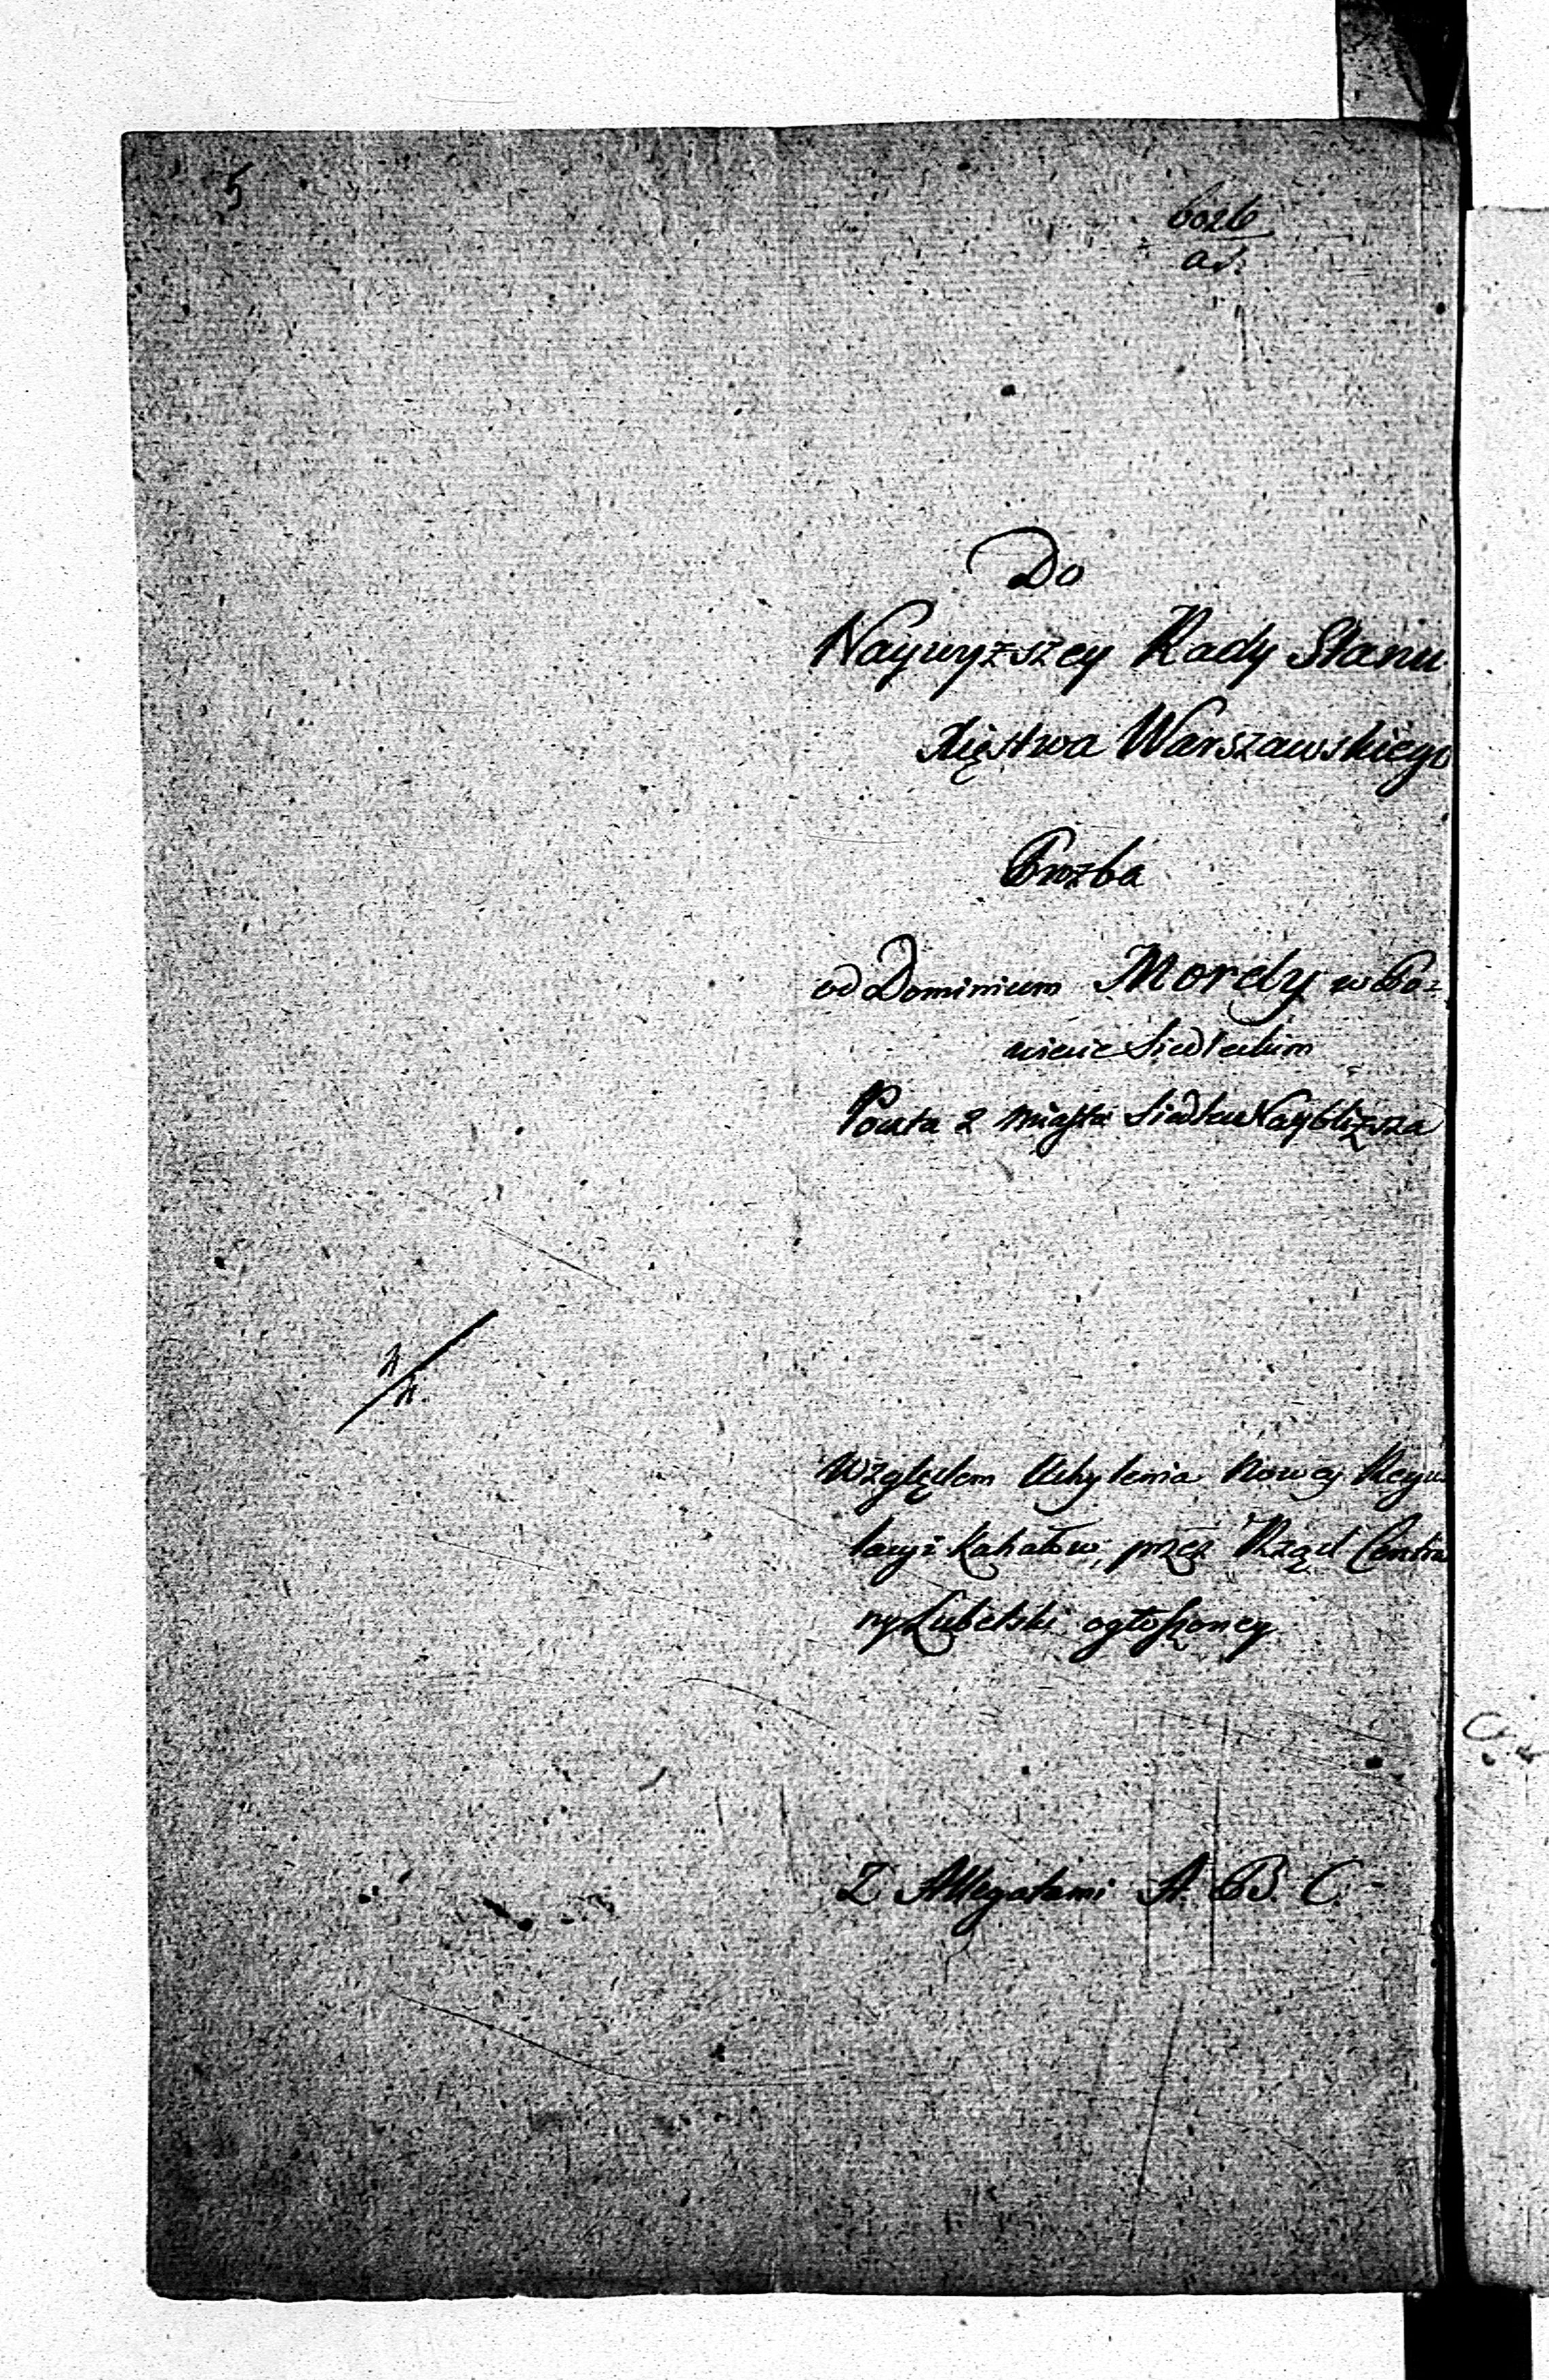 5
6026
ad.
Do
Naywyzszey Rady Stanu
Xięstwa Warszawskiego
Prozba
od Dominium Mordy w Po=
wiecie Siedleckim
Poczta z miasta Siedlec Nayblizsza
Względem Uchylenia Nowey Regu
lacyi Kahałow, przez Rząd Centra
ny Lubelski ogłoszoney
Z Allegatami A. B. C.